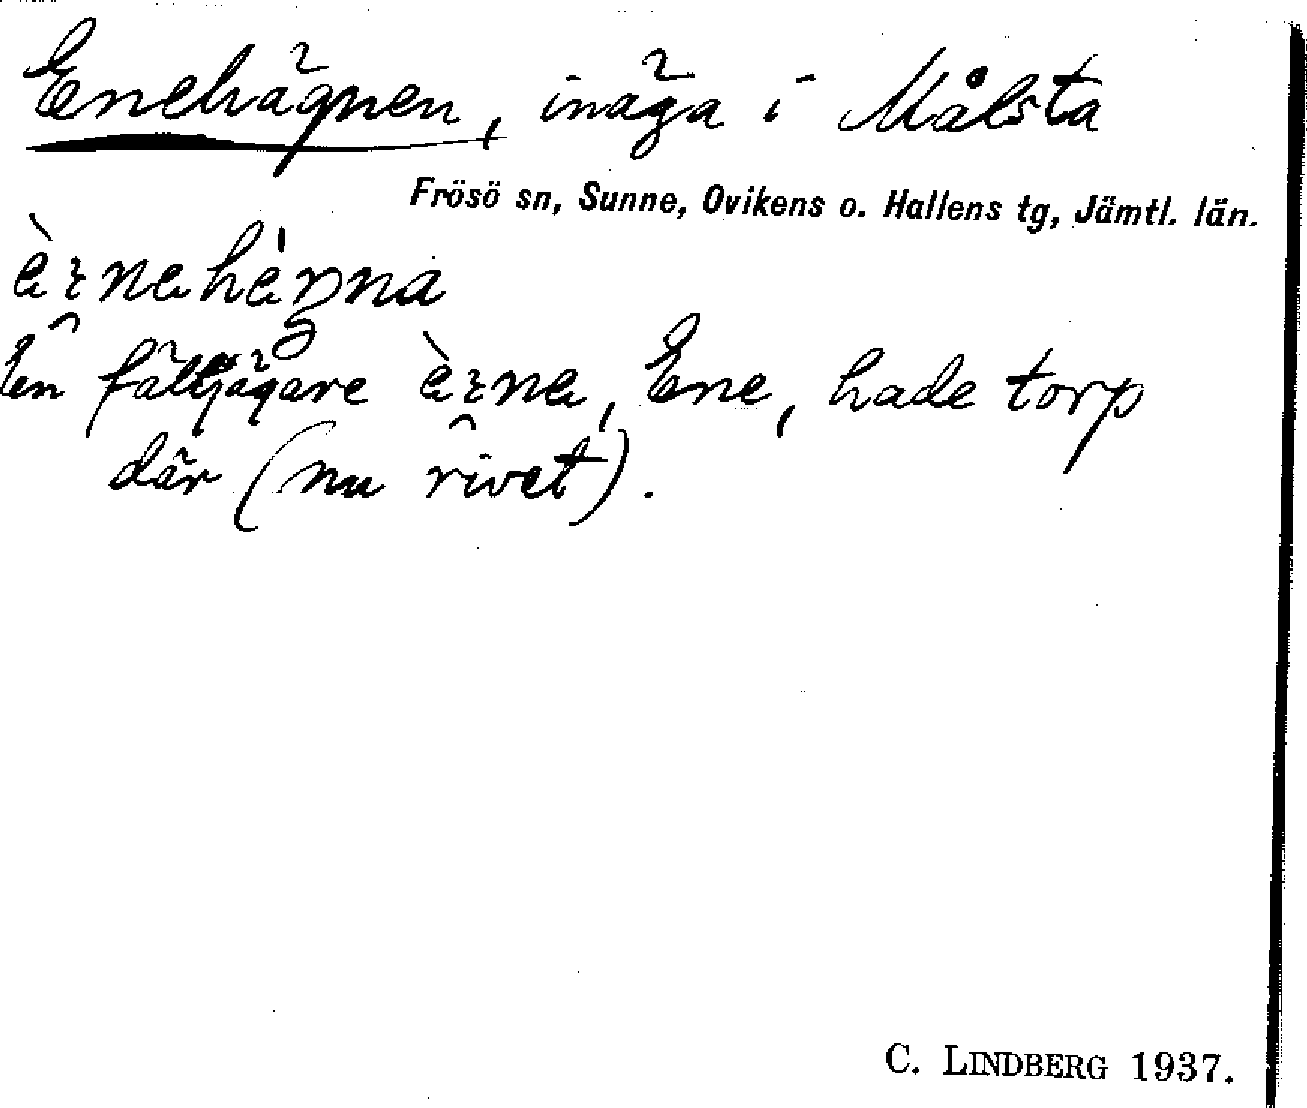 Enehägnen, inäga i Målsta
Frösö sn, Sunne, Ovikens o. Hallens tg, Jämtl. län.
En fältjägare Ene, hade torp
där (nu rivet).
C. LINDBERG 1937.